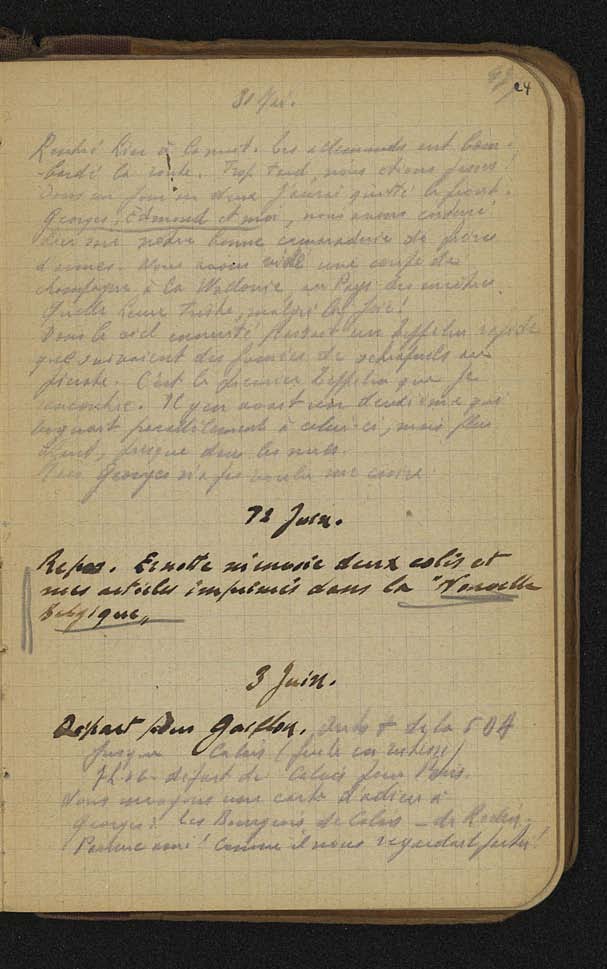 24
31 Mai.
Rentré hier à la nuit. Les allemands ont bom-
-bardé la route. Trop tard, nous étions passés!
Dans un jour ou deux j'aurai quitté le front.
Georges, Edmond et moi, nous avons
hier soir notre bonne camaraderie de frères
d'armes. Nous avons vidé une coupe de
champagne à la Wallonie, au Pays des ancêtres
Quelle heure triste, malgré la joie!
Dans le ciel passait un Zeppelin rapide
que suivaient des fumées de schrapnels
. C'est le premier Zeppelin que je
rencontre. Il y en avait un deuxième qui
voguait parallèlement à celui-ci, mais plus
haut, presque dans les nues.
Mais Georges n'a pas voulu me croire.
12 Juin.
Repos. m'envoie deux colis et
mes articles imprimés dans la "Nouvelle
Belgique„
3 Juin.
Départ pour Gaillon. de la
jusque Calais
départ de Calais pour Paris.
Nous envoyons une carte d'adieu à
Georges: Les Bourgeois de Calais - de Rodin.
Pauvre ami! Comme il nous regardait partir!